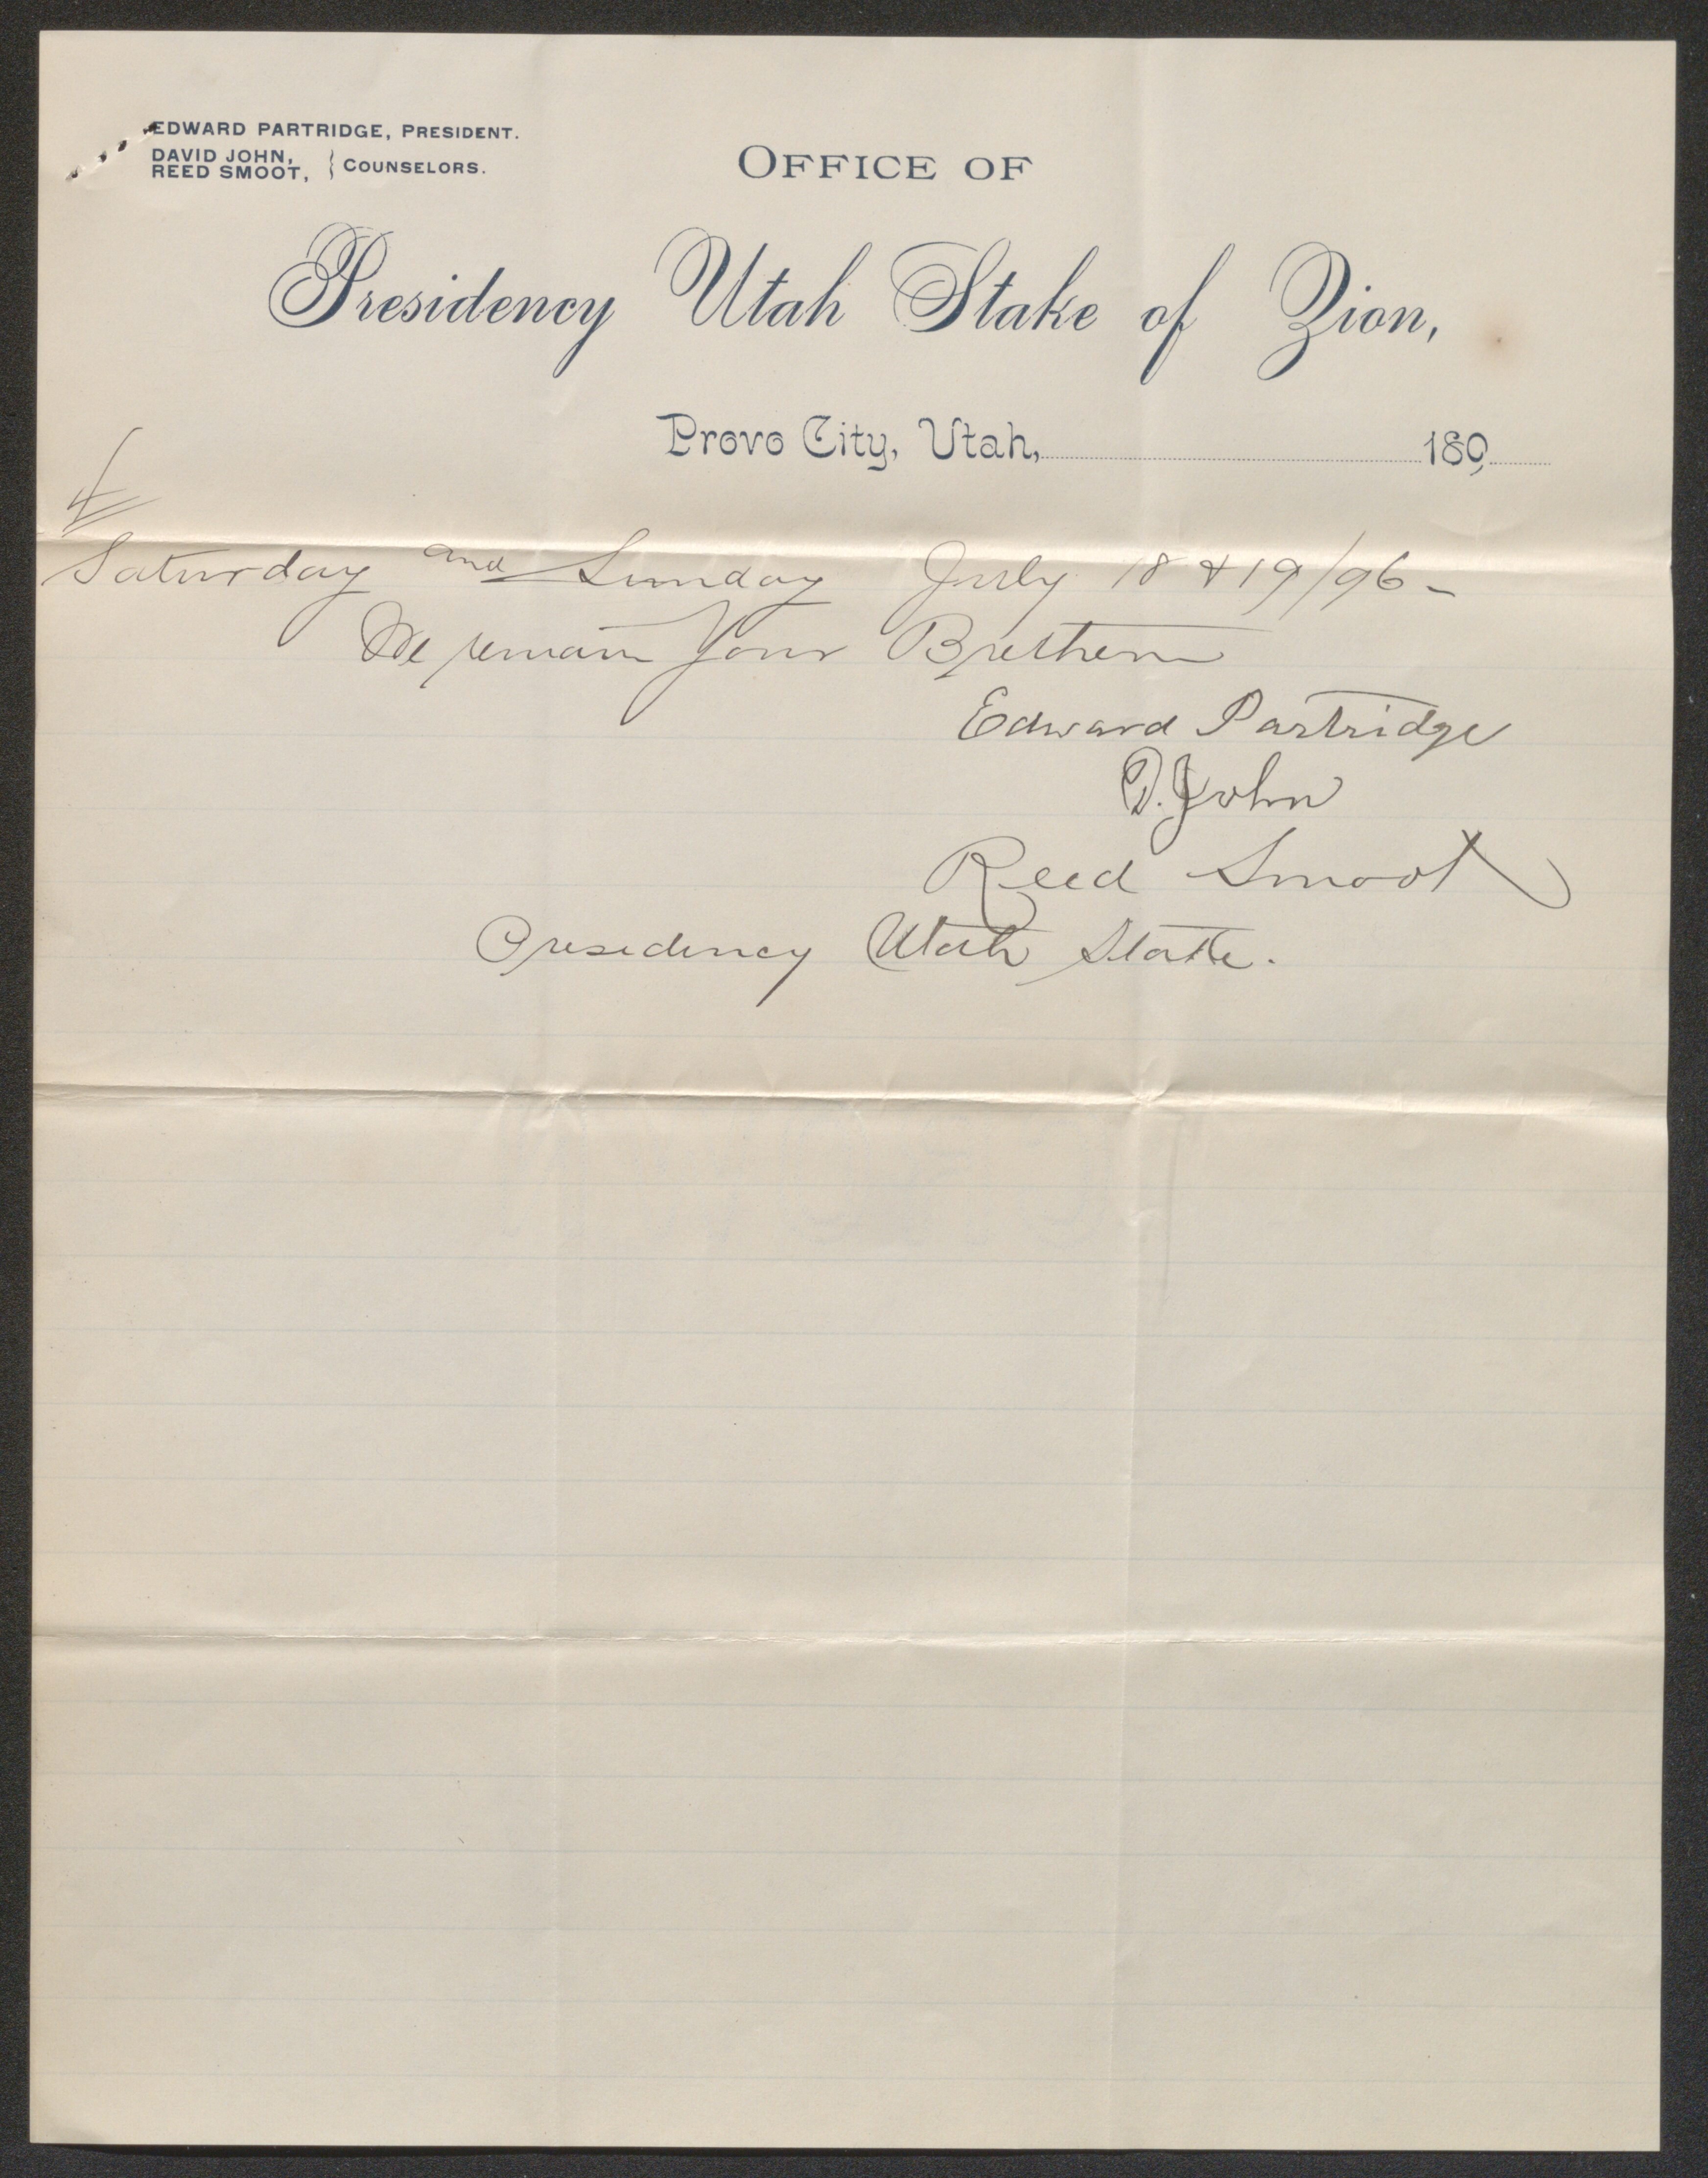 EDWARD PARTRIDGE, PRESIDENT.
DAVID JOHN,
REED SMOOT, } COUNSELORS.
OFFICE OF
Presidency Utah Stake of Zion,
Provo City, Utah, 189
4
Saturday and Sunday July 18 & 19/96 -
We remain Your Brethern
Edward Partridge
D. John
Reed Smoot
Presidency Utah Stake.